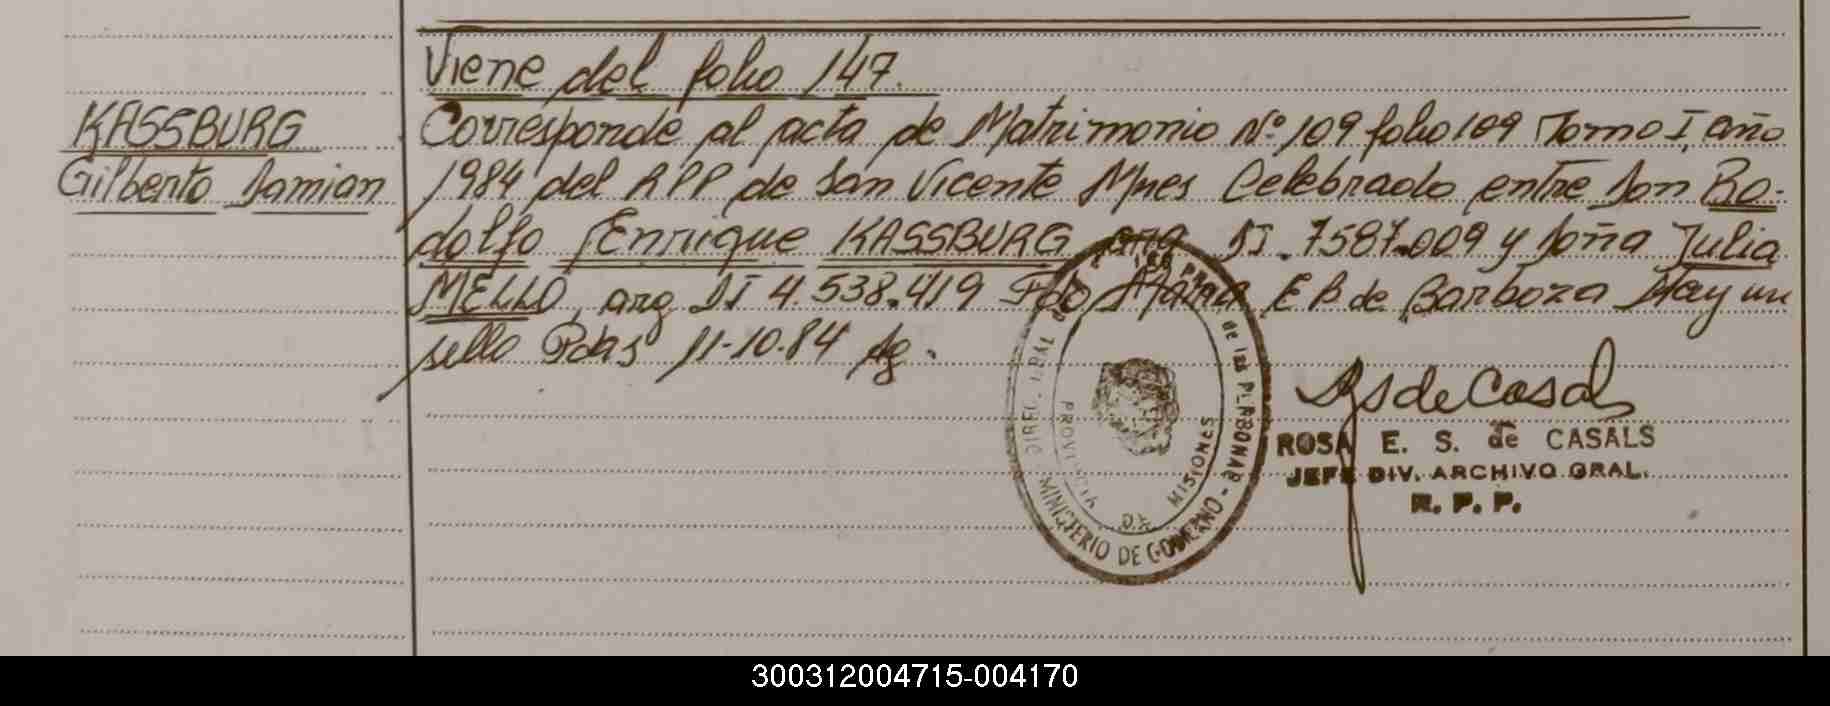 Viene del folio 147.
KASSBURG
Gilberto Damian
Corresponde al acta de Matrimonio Nº 109 folio 109 Tomo I, año
1984 del RPP de San Vicente Mnes Celebrado entre Don Ro-
dolfo Enrique KASSBURG arg DI. 7587.009 y Doña Julia
MELLO, arg DI 4.538.419 Fdo María E B. de Barboza Hay un
sello Pdas 11-10.84 Ag.
ROSA E. S. de CASALS
JEFE DIV. ARCHIVO GRAL.
R. P. P.
MINISTERIO DE GOBIERNO
PROVINCIA DE MISIONES
300312004715-004170